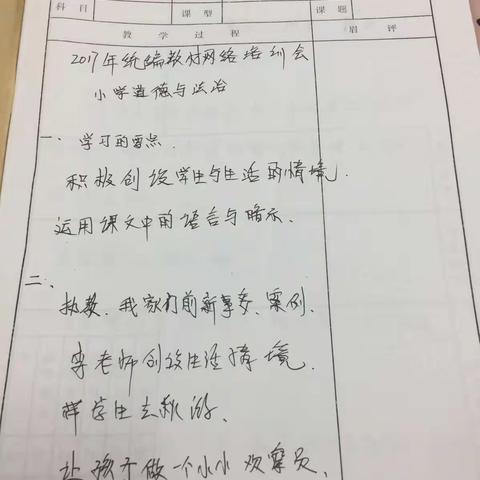 科目 课型 课题
教学过程 眉评
2017年统编教材网络培训会
小学道德与法治
一、学习的要点.
积极创设学生与生活的情境.
运用课文中的语言与暗示、
二、
执教、我家门前新事多、案例、
李老师创设生活情境、
带学生去秋游、
让孩子做一个小小观察员、